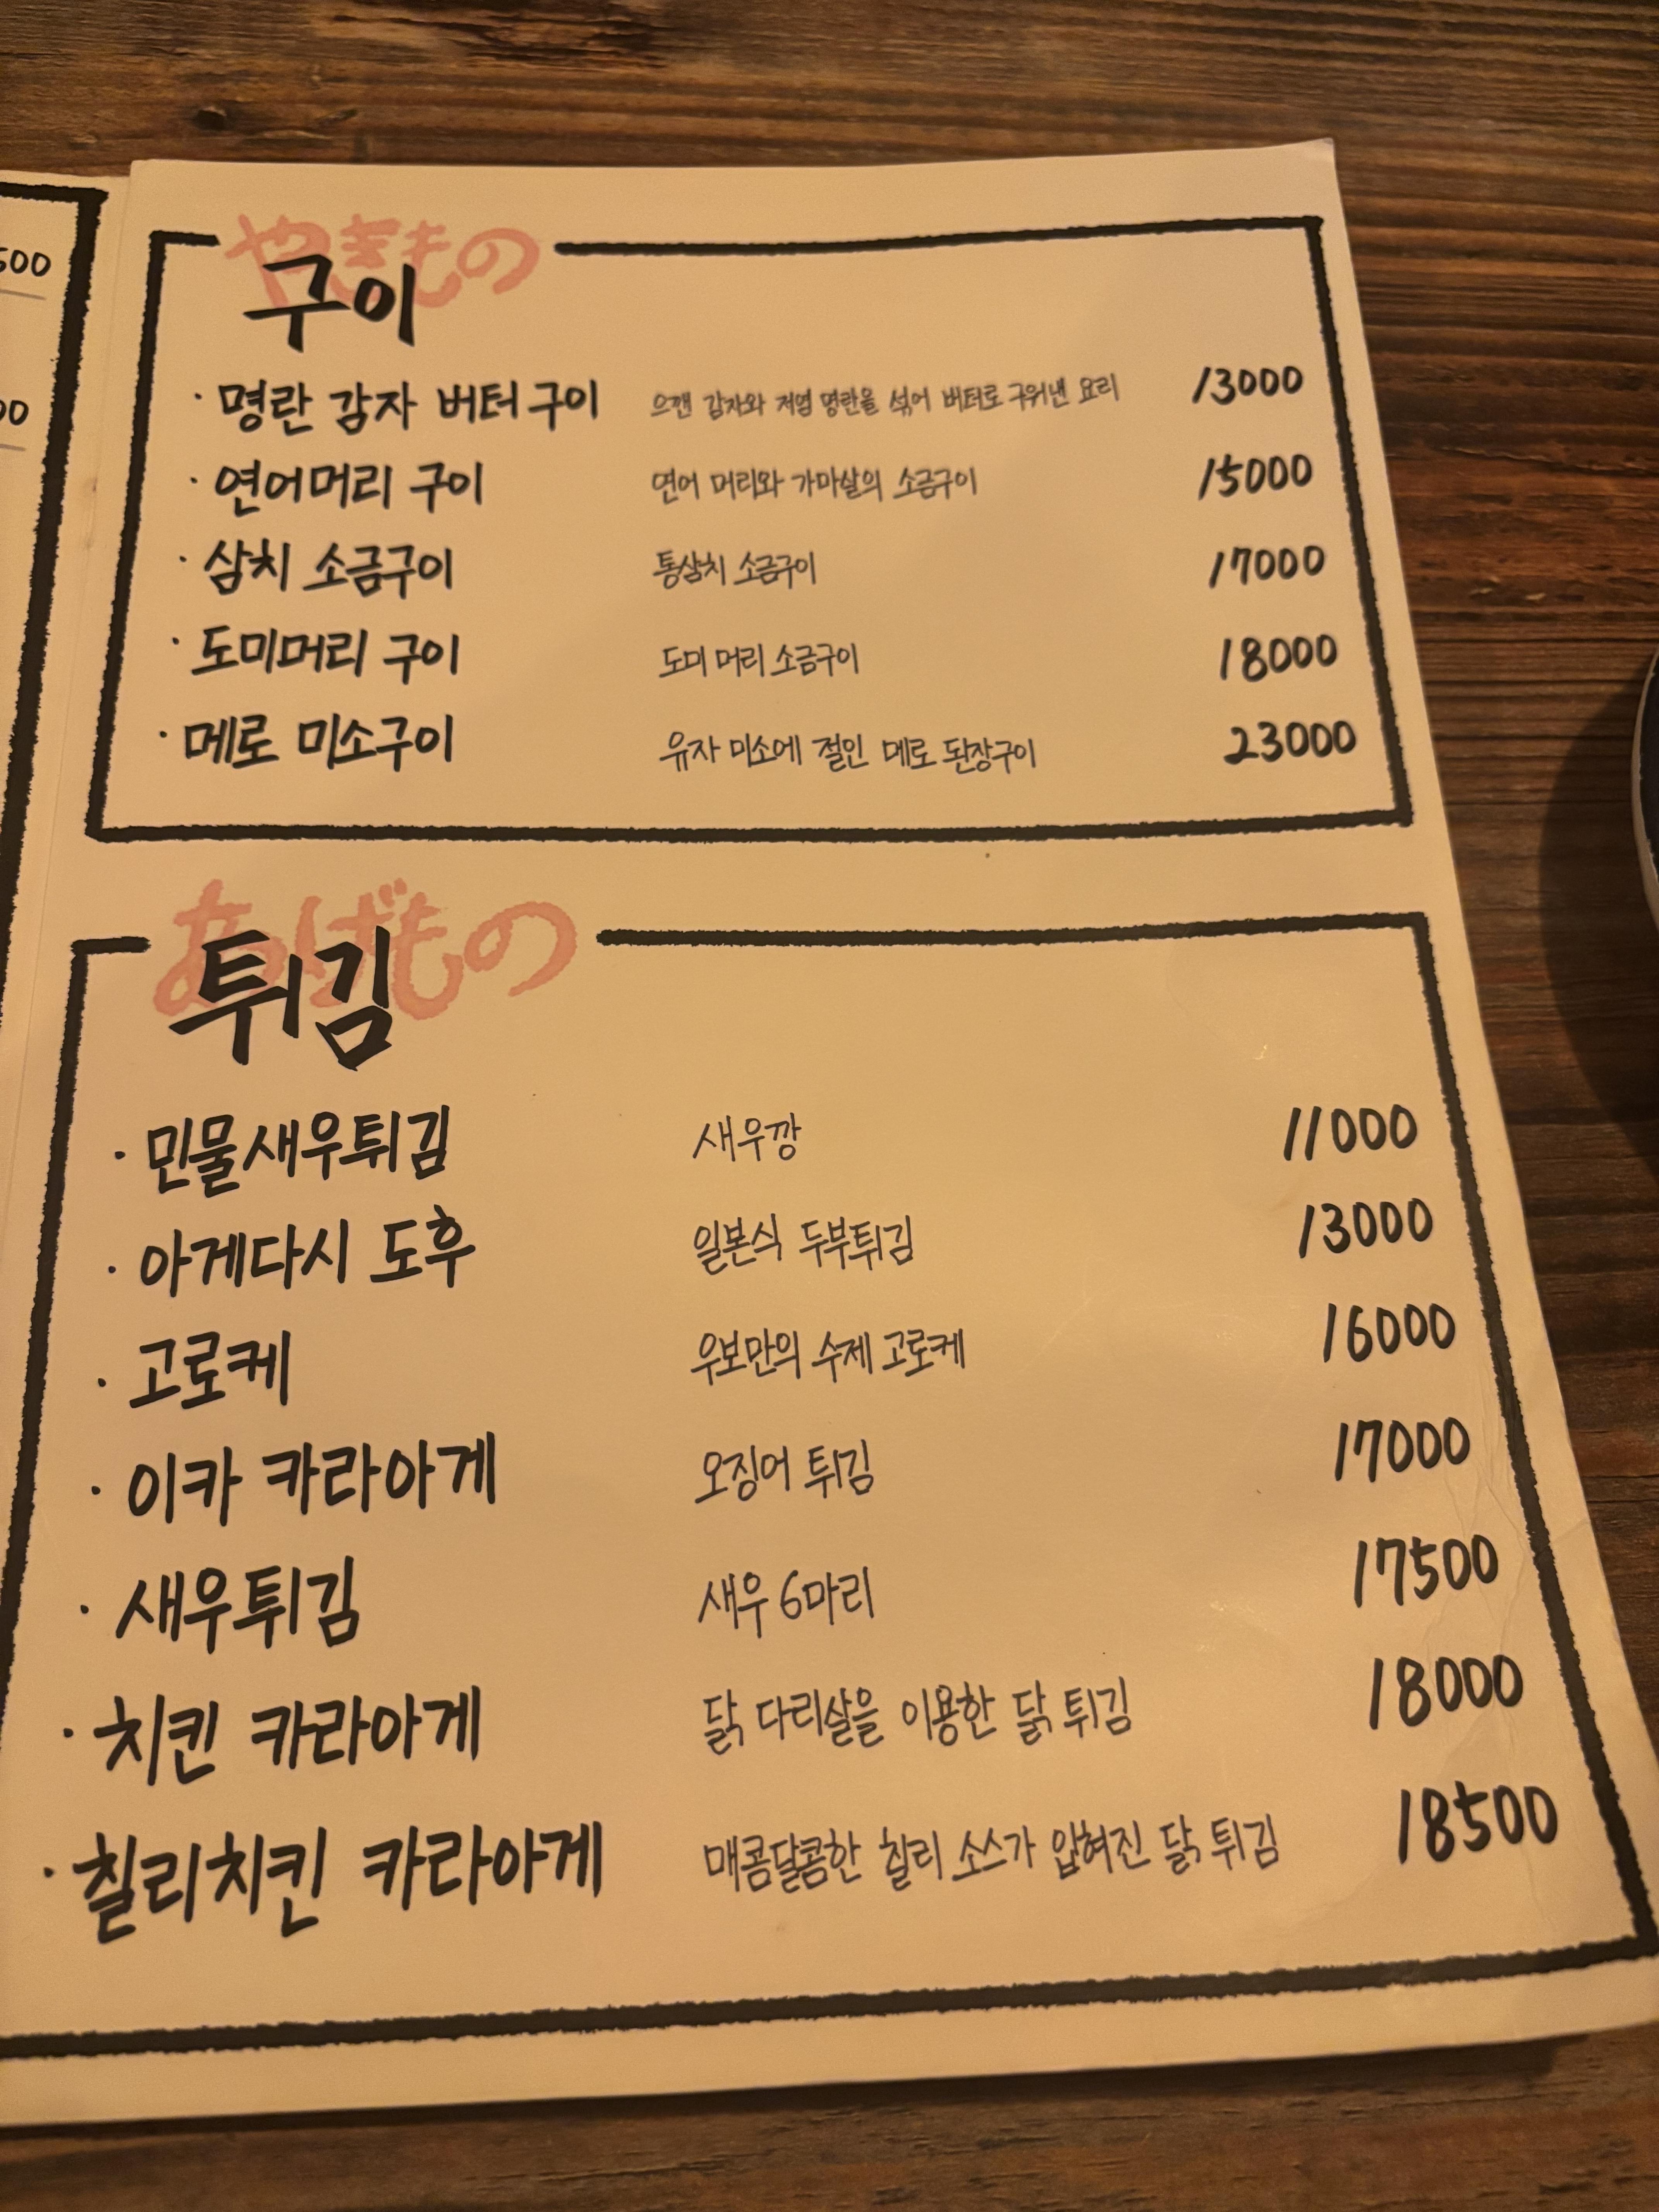 500
00
やきもの
구이
· 명란 감자 버터구이 으깬 감자와 저염 명란을 섞어 버터로 구워낸 요리 13000
· 연어머리 구이 연어 머리와 가마살의 소금구이 15000
· 삼치 소금구이 통삼치 소금구이 17000
· 도미머리 구이 도미 머리 소금구이 18000
· 메로 미소구이 유자 미소에 절인 메로 된장구이 23000
あげもの
튀김
· 민물새우튀김 새우깡 11000
· 아게다시 도후 일본식 두부튀김 13000
· 고로케 우보만의 수제 고로케 16000
· 이카 카라아게 오징어 튀김 17000
· 새우튀김 새우 6마리 17500
· 치킨 카라아게 닭 다리살을 이용한 닭 튀김 18000
· 칠리치킨 카라아게 매콤달콤한 칠리 소스가 입혀진 닭 튀김 18500